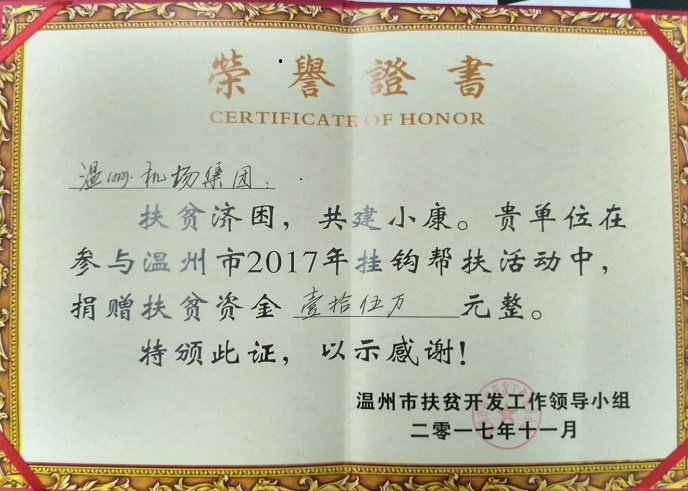 榮譽證書
CERTIFICATE OF HONOR
温州机场集团：
扶贫济困，共建小康。贵单位在
参与温州市2017年挂钩帮扶活动中，
捐赠扶贫资金 壹拾伍万 元整。
特颁此证，以示感谢！
温州市扶贫开发工作领导小组
二零一七年十一月